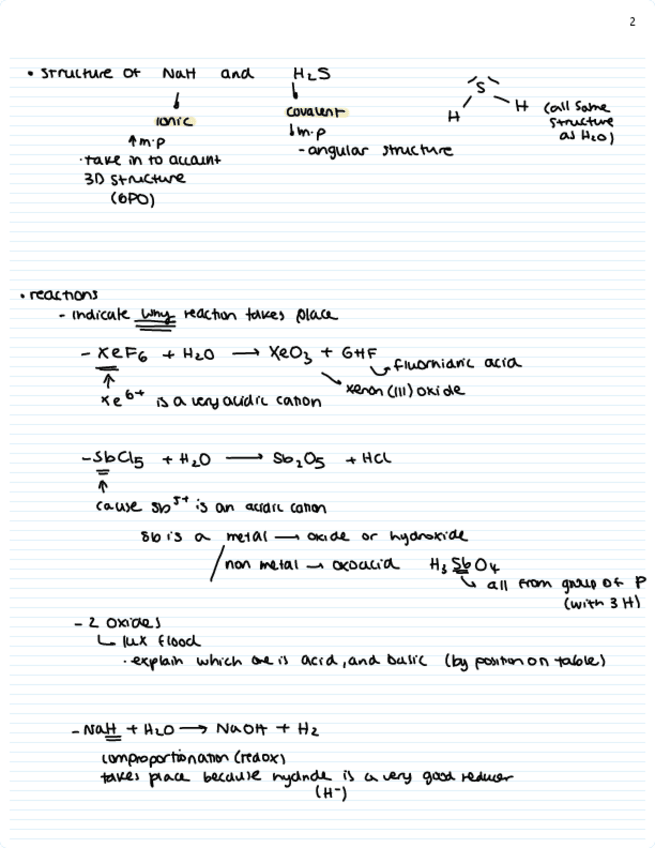 2
• structure of NaH and H₂S
S
H H
(all same structure as H₂O)
ionic
covalent
↑m.p
↓m.p
- angular structure
· take in to account
3D structure
(6PO)
• reactions
- indicate why reaction takes place
- XeF₆ + H₂O → XeO₃ + 6HF
fluorhidric acid
xenon (III) oxide
↑
Xe⁶⁺ is a very acidic cation
- SbCl₅ + H₂O → Sb₂O₅ + HCl
↑
cause Sb⁵⁺ is an acidic cation
Sb is a metal → oxide or hydroxide
/ non metal → oxoacid H₃SbO₄
↳ all from group of P
(with 3 H)
- 2 oxides
↳ lux flood
· explain which one is acid, and basic (by position on table)
- NaH + H₂O → NaOH + H₂
comproportionation (redox)
takes place because hydride is a very good reducer
(H⁻)